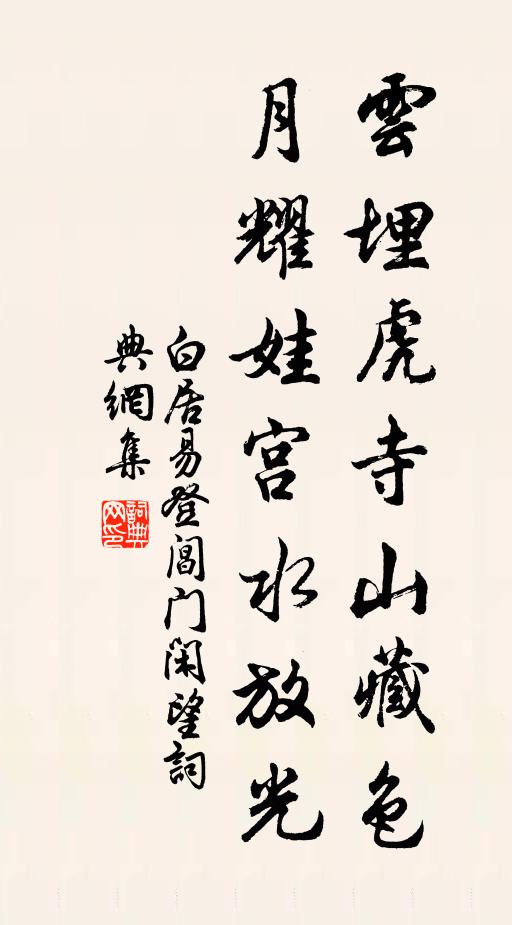 雲埋虎寺山藏色
月耀娃宮水放光
白居易登閶门闲望詞
典網集
詞典网印